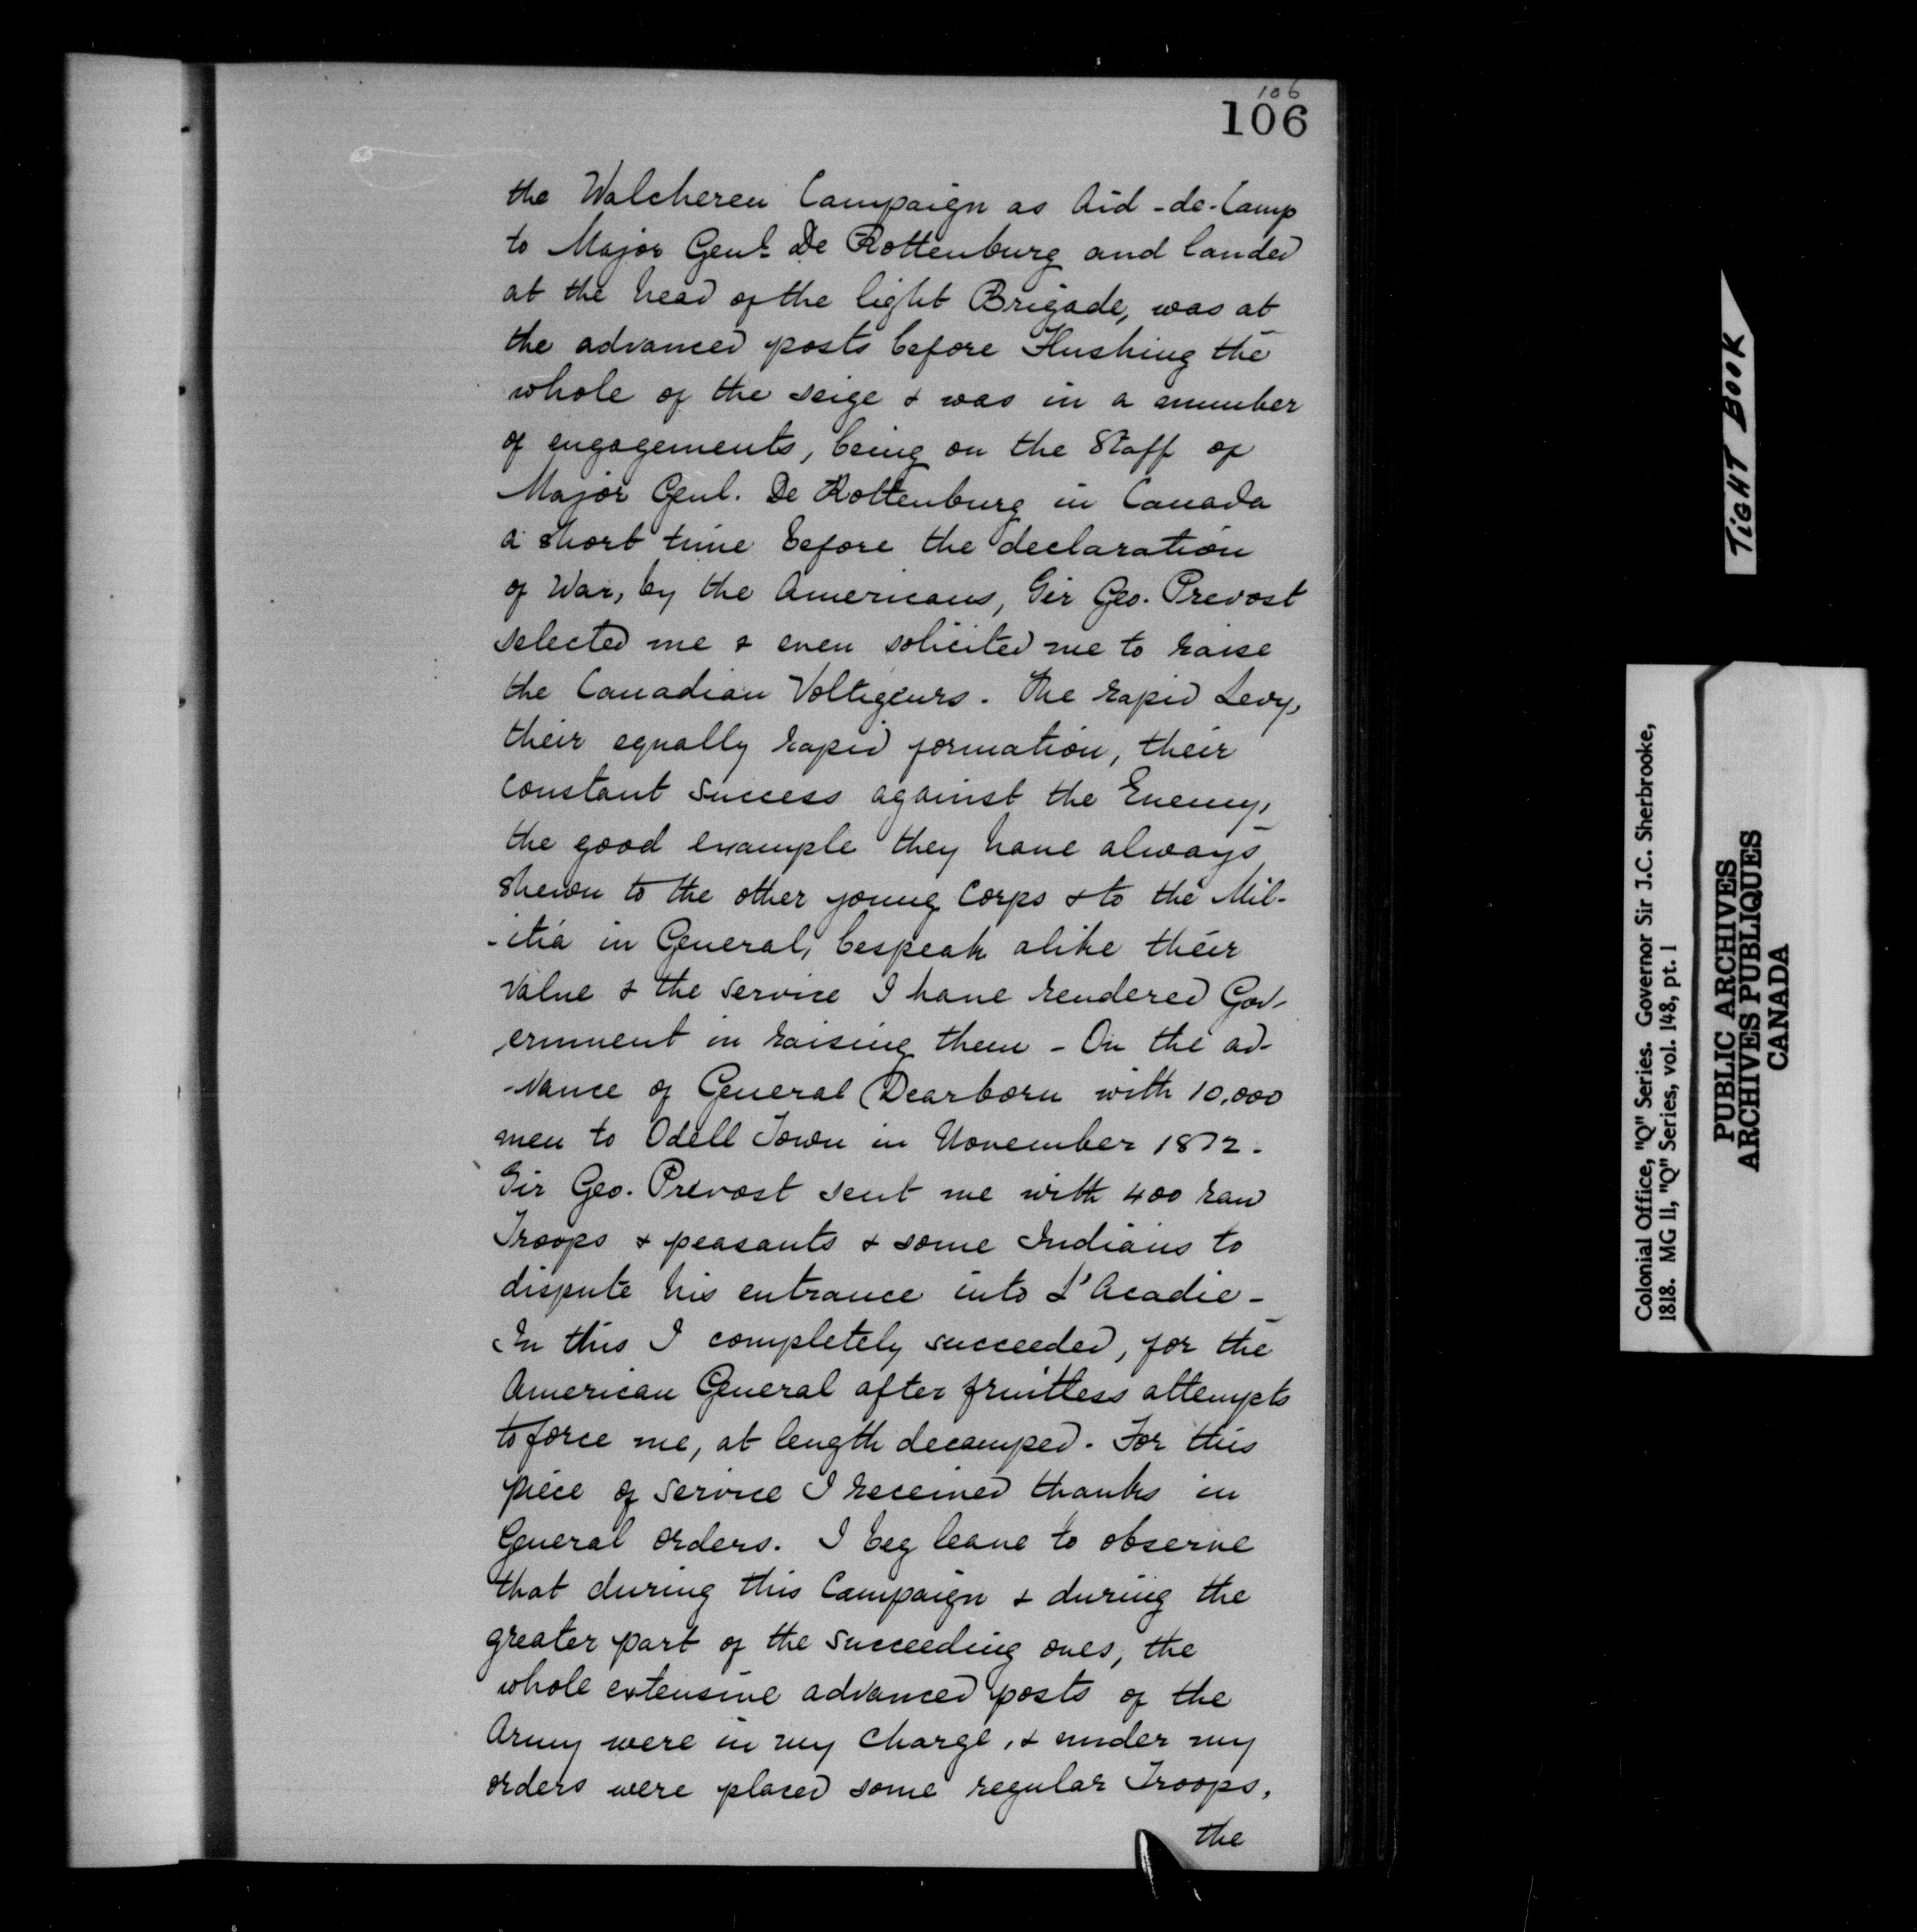 106
106
the Walcheren Campaign as Aid-de-Camp
to Major Genl. De Rottenburg and landed
at the head of the light Brigade, was at
the advanced posts before Flushing the
whole of the seige & was in a number
of engagements, being on the Staff of
Major Genl. De Rottenburg in Canada
a short time before the declaration
of War, by the Americans, Sir Geo. Prevost
selected me & even solicited me to raise
the Canadian Voltigeurs. The rapid Levy,
their equally rapid formation, their
constant success against the Enemy,
the good example they have always
shewn to the other young Corps & to the Mil-
-itia in General, bespeak alike their
value & the service I have rendered Gov-
ernment in raising them - On the ad-
-vance of General Dearborn with 10,000
men to Odell Town in November 1812.
Sir Geo. Prevost sent me with 400 raw
Troops & peasants & some Indians to
dispute his entrance into L'Acadie -
In this I completely succeeded, for the
American General after fruitless attempts
to force me, at length decamped. For this
piece of service I received thanks in
General orders. I beg leave to observe
that during this Campaign & during the
greater part of the succeeding ones, the
whole extensive advanced posts of the
Army were in my charge, & under my
orders were placed some regular Troops,
the
TIGHT BOOK
Colonial Office, "Q" Series. Governor Sir J.C. Sherbrooke,
1818. MG 11, "Q" Series, vol. 148, pt. 1
PUBLIC ARCHIVES
ARCHIVES PUBLIQUES
CANADA